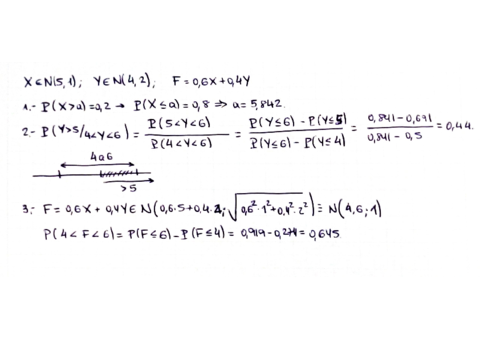 X∈N(5,1); Y∈N(4,2); F=0,6X+0,4Y
1.- P(X>a)=0,2 → P(X≤a)=0,8 ⇒ a=5,842.
2.- P(Y>5/4<Y<6) = P(5<Y<6) / P(4<Y<6) = P(Y≤6) - P(Y≤5) / P(Y≤6) - P(Y≤4) = 0,841-0,691 / 0,841-0,5 = 0,44.
4a6
>5
3.- F = 0,6X + 0,4Y ∈ N(0,6·5+0,4·4; √(0,6²·1²+0,4²·2²)) ≡ N(4,6;1)
P(4<F<6) = P(F≤6) - P(F≤4) = 0,919-0,274 = 0,645.